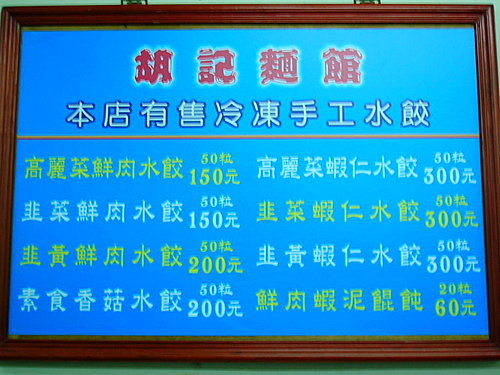 胡記麵館
本店有售冷凍手工水餃
高麗菜鮮肉水餃 50粒 150元
高麗菜蝦仁水餃 50粒 300元
韭菜鮮肉水餃 50粒 150元
韭菜蝦仁水餃 50粒 300元
韭黃鮮肉水餃 50粒 200元
韭黃蝦仁水餃 50粒 300元
素食香菇水餃 50粒 200元
鮮肉蝦泥餛飩 20粒 60元